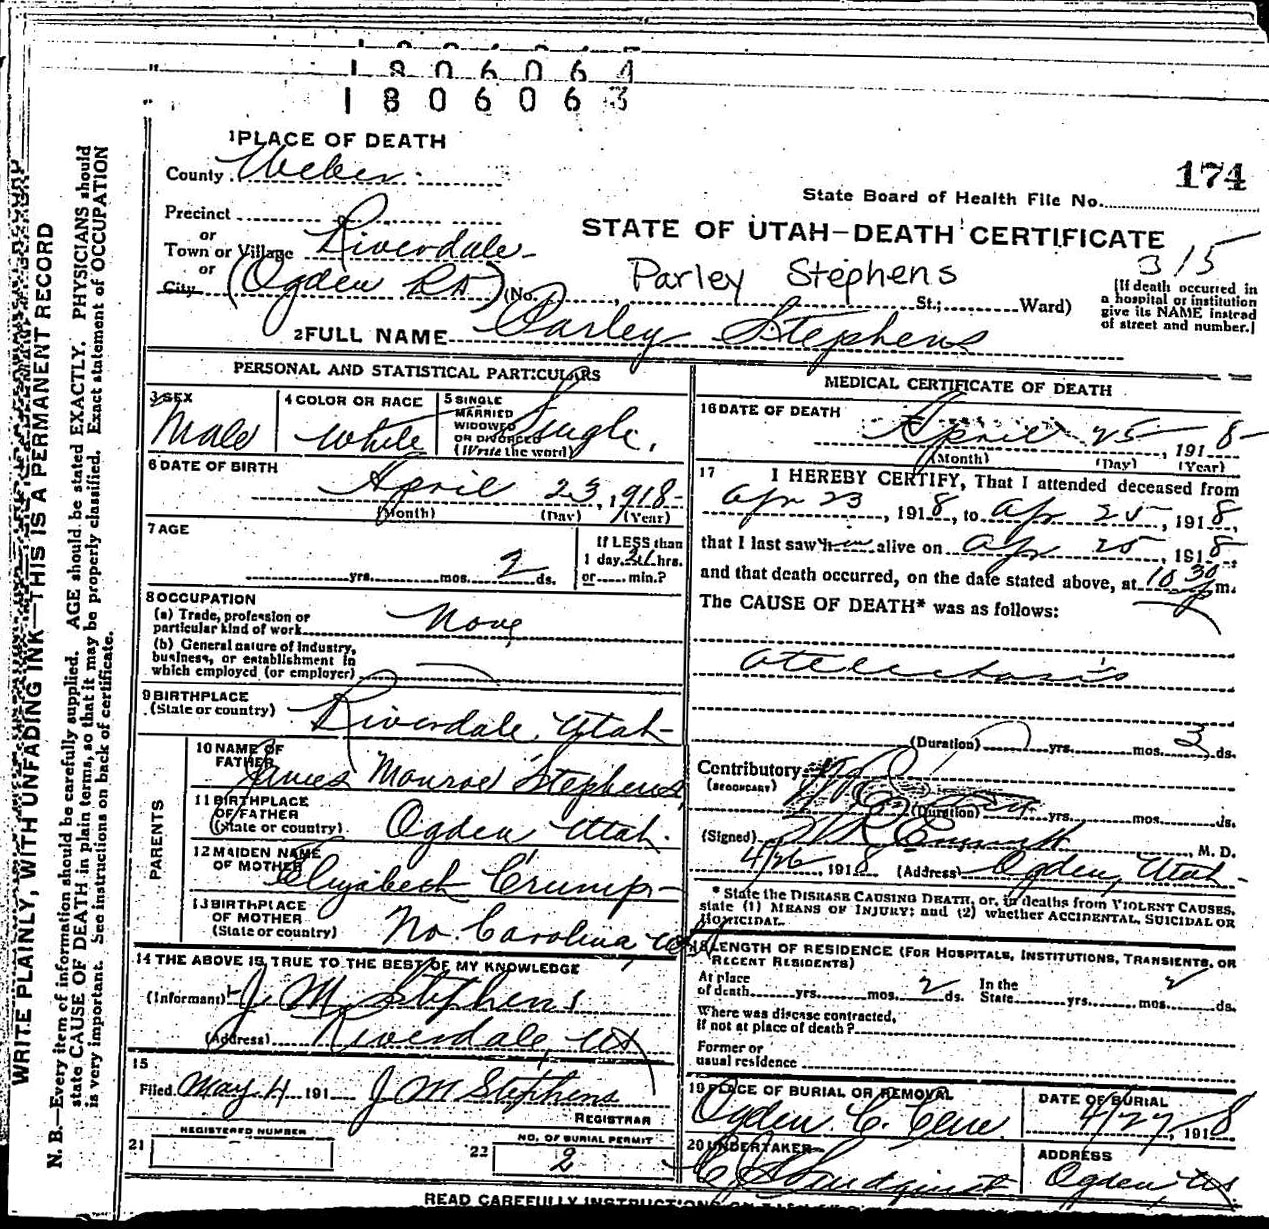 1806064
1806063
1 PLACE OF DEATH
County Weber
174
State Board of Health File No.
Precinct
or
Town or Village Riverdale
or
City (Ogden RD) (No. St.; Ward)
STATE OF UTAH—DEATH CERTIFICATE
315
Parley Stephens
[If death occurred in
a hospital or institution
give its NAME instead
of street and number.]
2 FULL NAME Parley Stephens
PERSONAL AND STATISTICAL PARTICULARS
3 SEX
Male
4 COLOR OR RACE
White
5 SINGLE
MARRIED
WIDOWED
OR DIVORCED
(Write the word)
Single.
6 DATE OF BIRTH
April 23, 1918
(Month) (Day) (Year)
7 AGE
yrs. mos. 2 ds.
If LESS than
1 day hrs.
or min.?
8 OCCUPATION
(a) Trade, profession or
particular kind of work None
(b) General nature of industry,
business, or establishment in
which employed (or employer)
9 BIRTHPLACE
(State or country) Riverdale, Utah
PARENTS
10 NAME OF
FATHER James Monroe Stephens
11 BIRTHPLACE
OF FATHER
(State or country) Ogden Utah.
12 MAIDEN NAME
OF MOTHER Elizabeth Crump
13 BIRTHPLACE
OF MOTHER
(State or country) No. Carolina,
14 THE ABOVE IS TRUE TO THE BEST OF MY KNOWLEDGE
(Informant) J M Stephens
(Address) Riverdale, Ut
15
Filed May 4 191 J M Stephens
REGISTRAR
REGISTERED NUMBER
21
NO. OF BURIAL PERMIT
22 2
MEDICAL CERTIFICATE OF DEATH
16 DATE OF DEATH
April 25, 1918
(Month) (Day) (Year)
17 I HEREBY CERTIFY, That I attended deceased from
Apr 23, 1918, to Apr 25, 1918,
that I last saw him alive on Apr 25, 1918,
and that death occurred, on the date stated above, at 10 30 p m.
The CAUSE OF DEATH* was as follows:
Atelectasis
(Duration) yrs. mos. 3 ds.
Contributory
(SECONDARY)
(Duration) yrs. mos. ds.
(Signed) M. D.
4/26 1918 (Address) Ogden, Utah
* State the DISEASE CAUSING DEATH, or, in deaths from VIOLENT CAUSES,
state (1) MEANS OF INJURY; and (2) whether ACCIDENTAL, SUICIDAL OR
HOMICIDAL.
18 LENGTH OF RESIDENCE (FOR HOSPITALS, INSTITUTIONS, TRANSIENTS, OR
RECENT RESIDENTS)
At place
of death yrs. mos. 2 ds. In the
State yrs. mos. 2 ds.
Where was disease contracted,
if not at place of death?
Former or
usual residence
19 PLACE OF BURIAL OR REMOVAL
Ogden C. Cem.
DATE OF BURIAL
4/27, 1918
20 UNDERTAKER
Lindquist
ADDRESS
Ogden, Ut
READ CAREFULLY INSTRUCTIONS ON
WRITE PLAINLY, WITH UNFADING INK—THIS IS A PERMANENT RECORD
N. B.—Every item of information should be carefully supplied. AGE should be stated EXACTLY. PHYSICIANS should
state CAUSE OF DEATH in plain terms, so that it may be properly classified. Exact statement of OCCUPATION
is very important. See instructions on back of certificate.